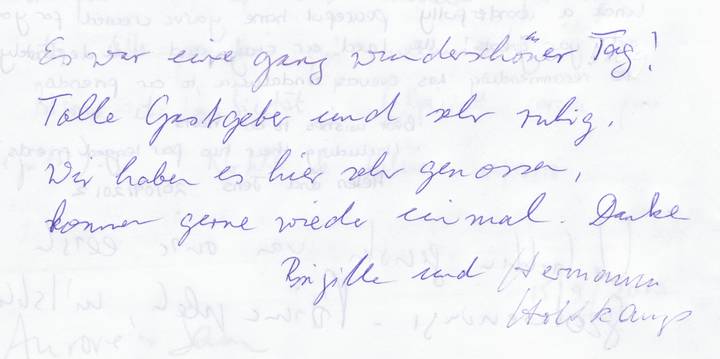 Es war eine ganz wunderschöner Tag!
Tolle Gastgeber und sehr ruhig.
Wir haben es hier sehr genossen,
kommen gerne wieder einmal. Danke
Brigitte und Hermann
Holtkamp